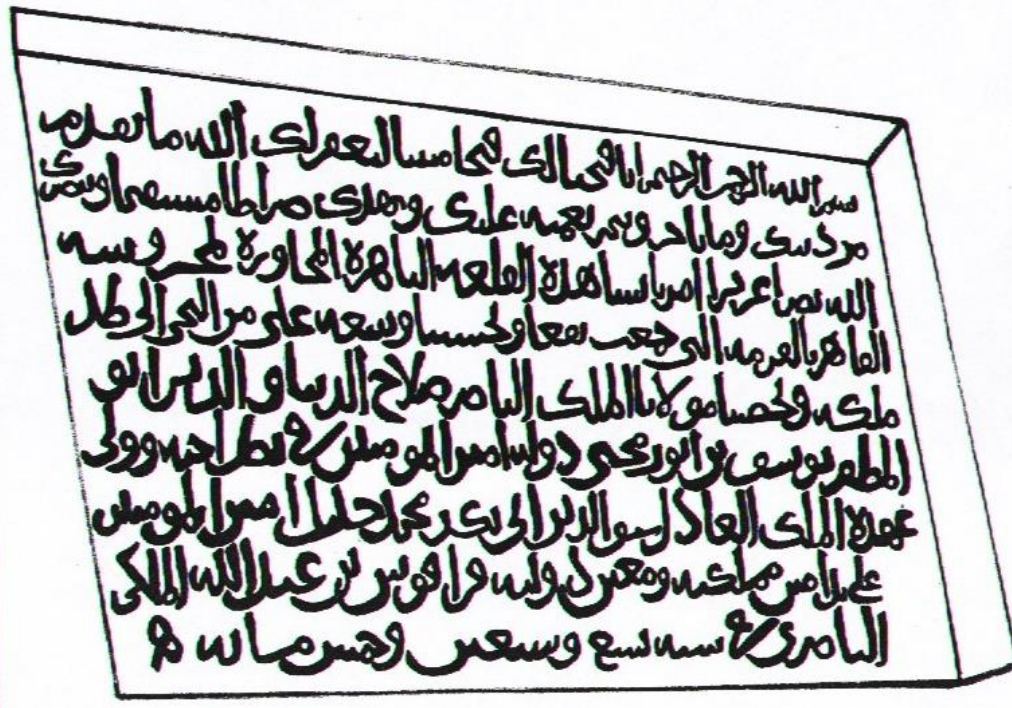 بسم الله الرحمن الرحيم إنا فتحنا لك فتحا مبينا ليغفر لك الله ما تقدم
من ذنبك وما تأخر ويتم نعمته عليك ويهديك صراطا مستقيما وينصرك
الله نصرا عزيزا أمر بإنشاء هذه القلعة الباهرة المجاورة لمحروسة
القاهرة بالعرمة التي جمعت نفعا وتحسينا وسعة على من التجأ إلى ظل
ملكه وتحصينا مولانا الملك الناصر صلاح الدنيا والدين أبو
المظفر يوسف بن أيوب محيي دولة أمير المؤمنين في نظر أخيه وولي
عهده الملك العادل سيف الدين أبي بكر محمد خليل أمير المؤمنين
على يد أمير مملكته ومعين دولته قراقوش بن عبد الله الملكي
الناصري في سنة تسع وسبعين وخمس مائة